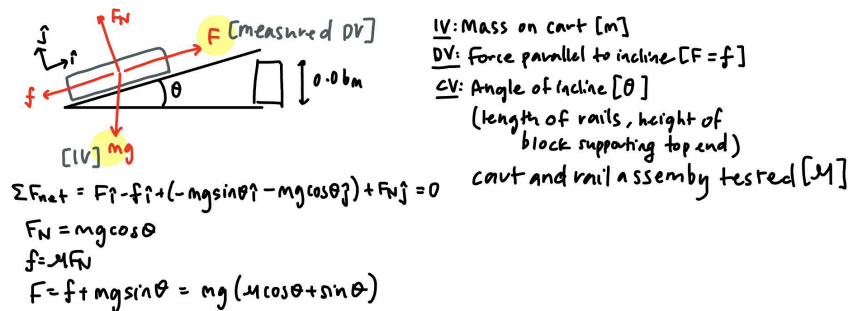 F_N
ĵ
î
F [measured DV]
f
θ
0.06m
[IV] mg
ΣF_net = Fî - fî + (-mgsinθî - mgcosθĵ) + F_Nĵ = 0
F_N = mgcosθ
f = μF_N
F = f + mgsinθ = mg (μcosθ + sinθ)
IV: Mass on cart [m]
DV: Force parallel to incline [F = f]
CV: Angle of incline [θ]
(length of rails, height of
block supporting top end)
cart and rail assemby tested [μ]